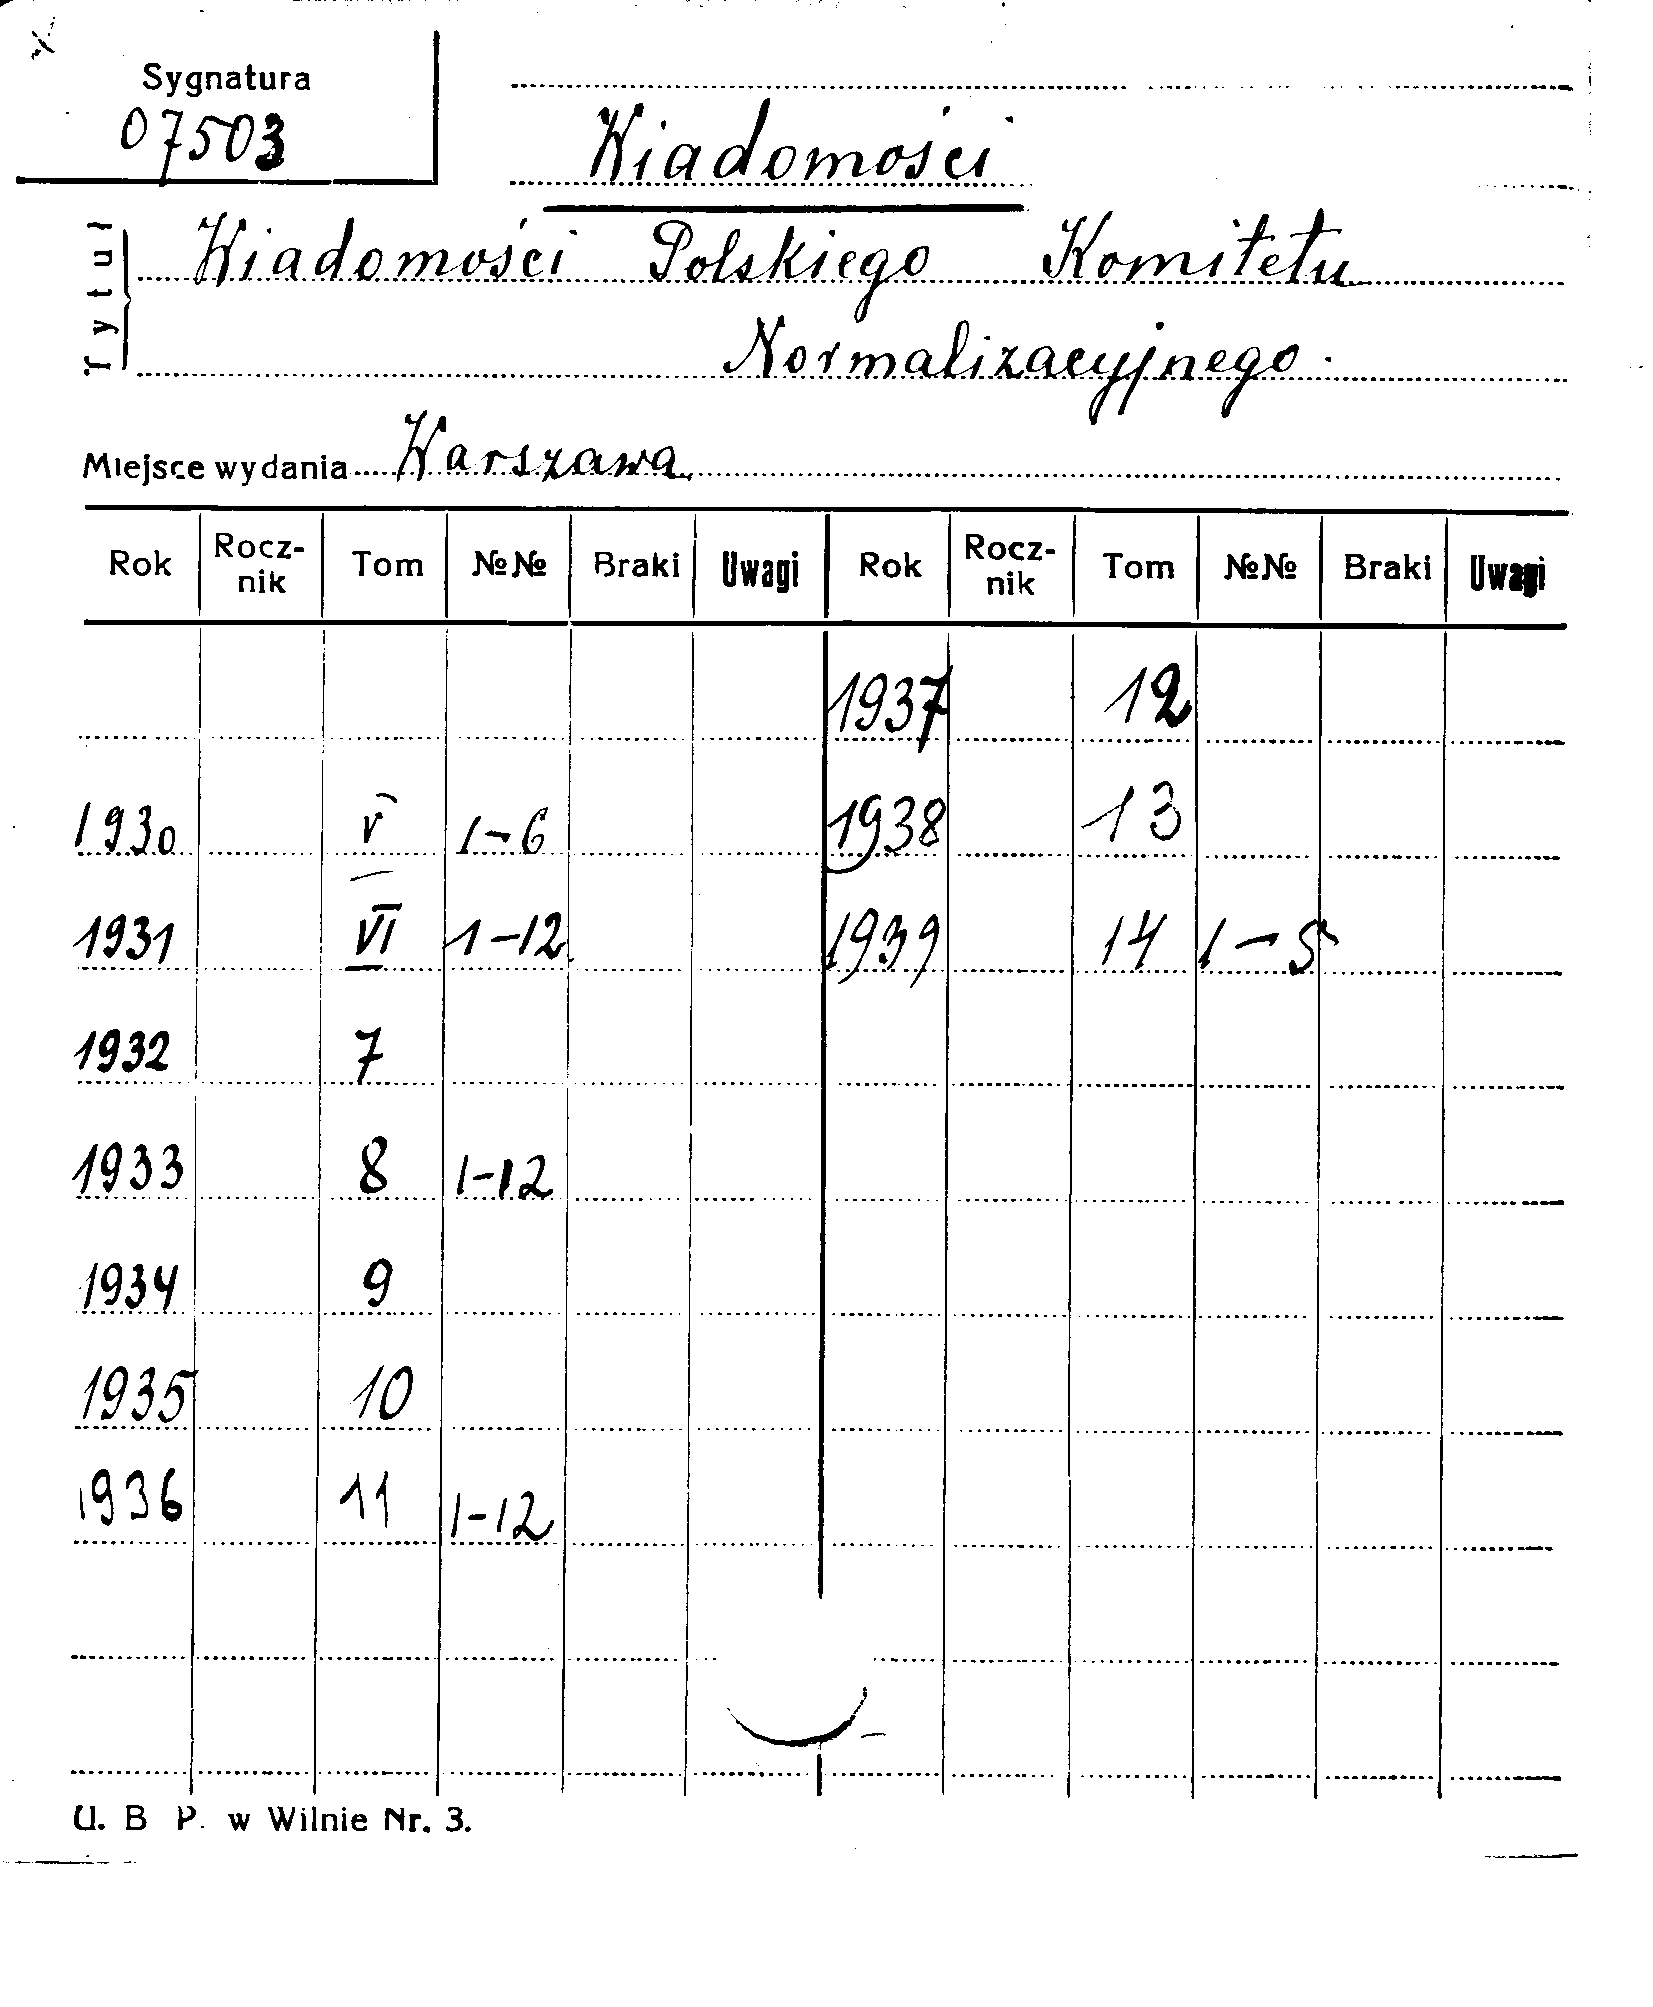 Sygnatura
07503
Wiadomości
Tytuł
Wiadomości Polskiego Komitetu
Normalizacyjnego.
Miejsce wydania Warszawa
Rok Rocz-nik Tom №№ Braki Uwagi Rok Rocz-nik Tom №№ Braki Uwagi
1937 12
1930 V 1-6 1938 13
1931 VI 1-12 1939 14 1-5
1932 7
1933 8 1-12
1934 9
1935 10
1936 11 1-12
U. B P. w Wilnie Nr. 3.